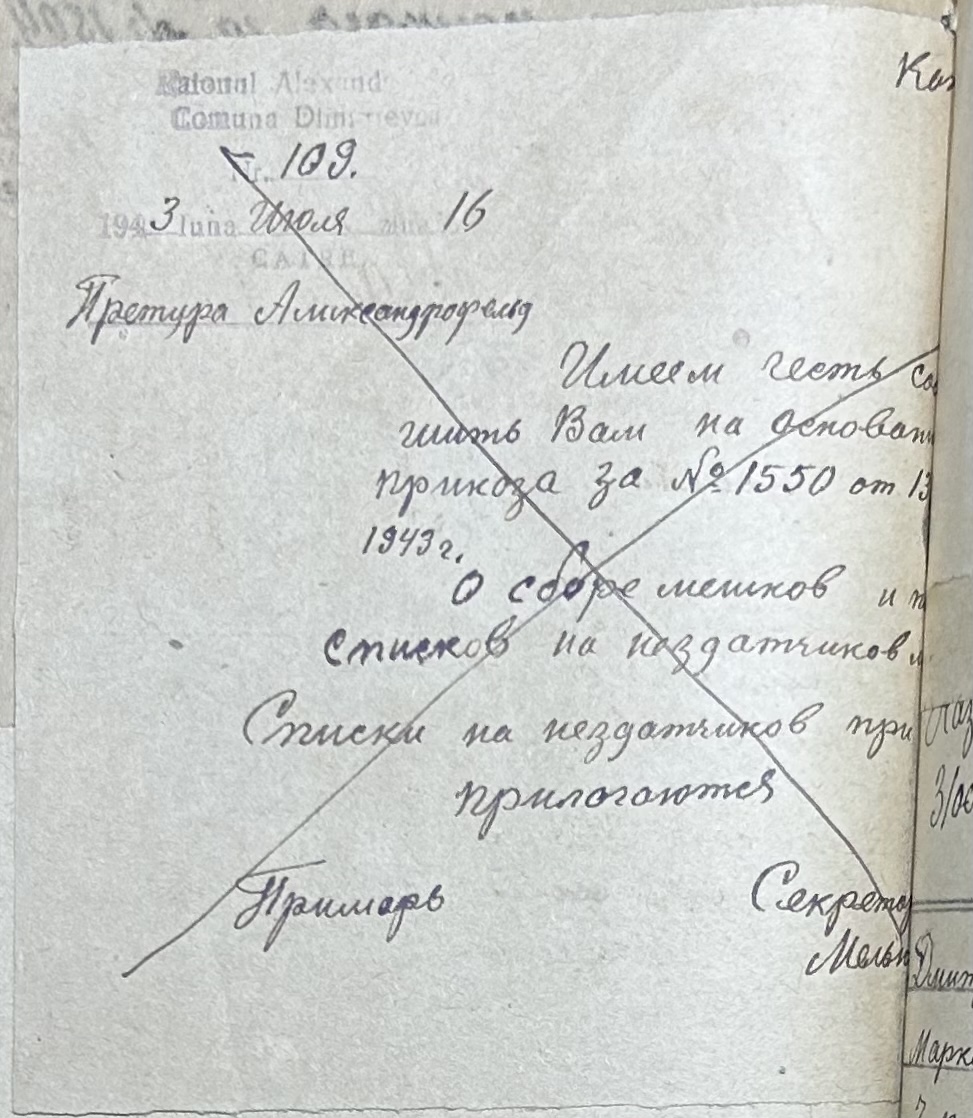 Raionul Alexand
Comuna Dimi
Nr. 109.
1943 luna Июля ziua 16
CATRE
Претура Александрофельд
Имеем честь со
шить Вам на основан
приказа за № 1550 от 13
1943 г.
О сборе мешков и п
списков на нездатчиков м
Списки на нездатчиков при
прилогаются
Примарь
Секрета
Мельн
Дмит
Марк